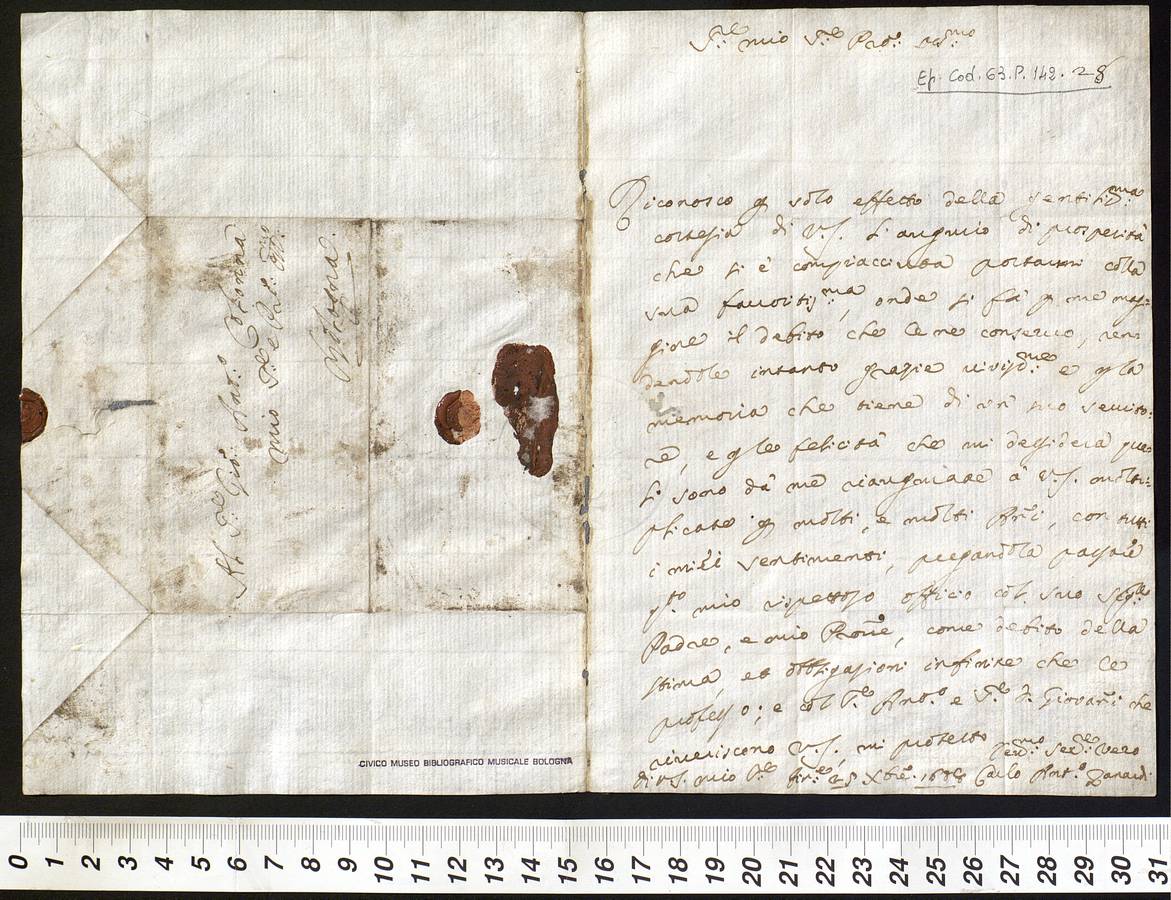 Sig.re mio Sig.re Pad.ne oss.mo
Ep. Cod. 63. P. 142. 28
Riconosco p solo effetto della gentiliss.ma
cortesia di V.S. l'augurio di prosperità
che si è compiacciuta portarmi colla
sua favoritiss.ma, onde si fà p me mag=
giore il debito che le ne conservo, ren=
dendole intanto grazie viviss.me e p la
memoria che tiene di un suo servito=
re, e p le felicità che mi desidera, qua=
li sono da me riaugurate à V.S. molti=
plicate p molti, e molti Anni, con tutti
i miei sentimenti, pregandola passare
q.to mio rispettoso officio col suo Sig.re
Padre, e mio Prone, come debito della
stima, et obligazioni infinite che le
professo; e col S.re Ant.o e S.re D. Giovani che
riveriscono V.S. mi protesto
Di V.S. mio Sig.re Fir.e 25 Xbre Carlo Ant.o Zanardi
Dev.mo Ser.re vero
Al Sig.re Gio. Colonna
mio Sig.re e Pad.
Bologna
CIVICO MUSEO BIBLIOGRAFICO MUSICALE BOLOGNA
0 1 2 3 4 5 6 7 8 9 10 11 12 13 14 15 16 17 18 19 20 21 22 23 24 25 26 27 28 29 30 31